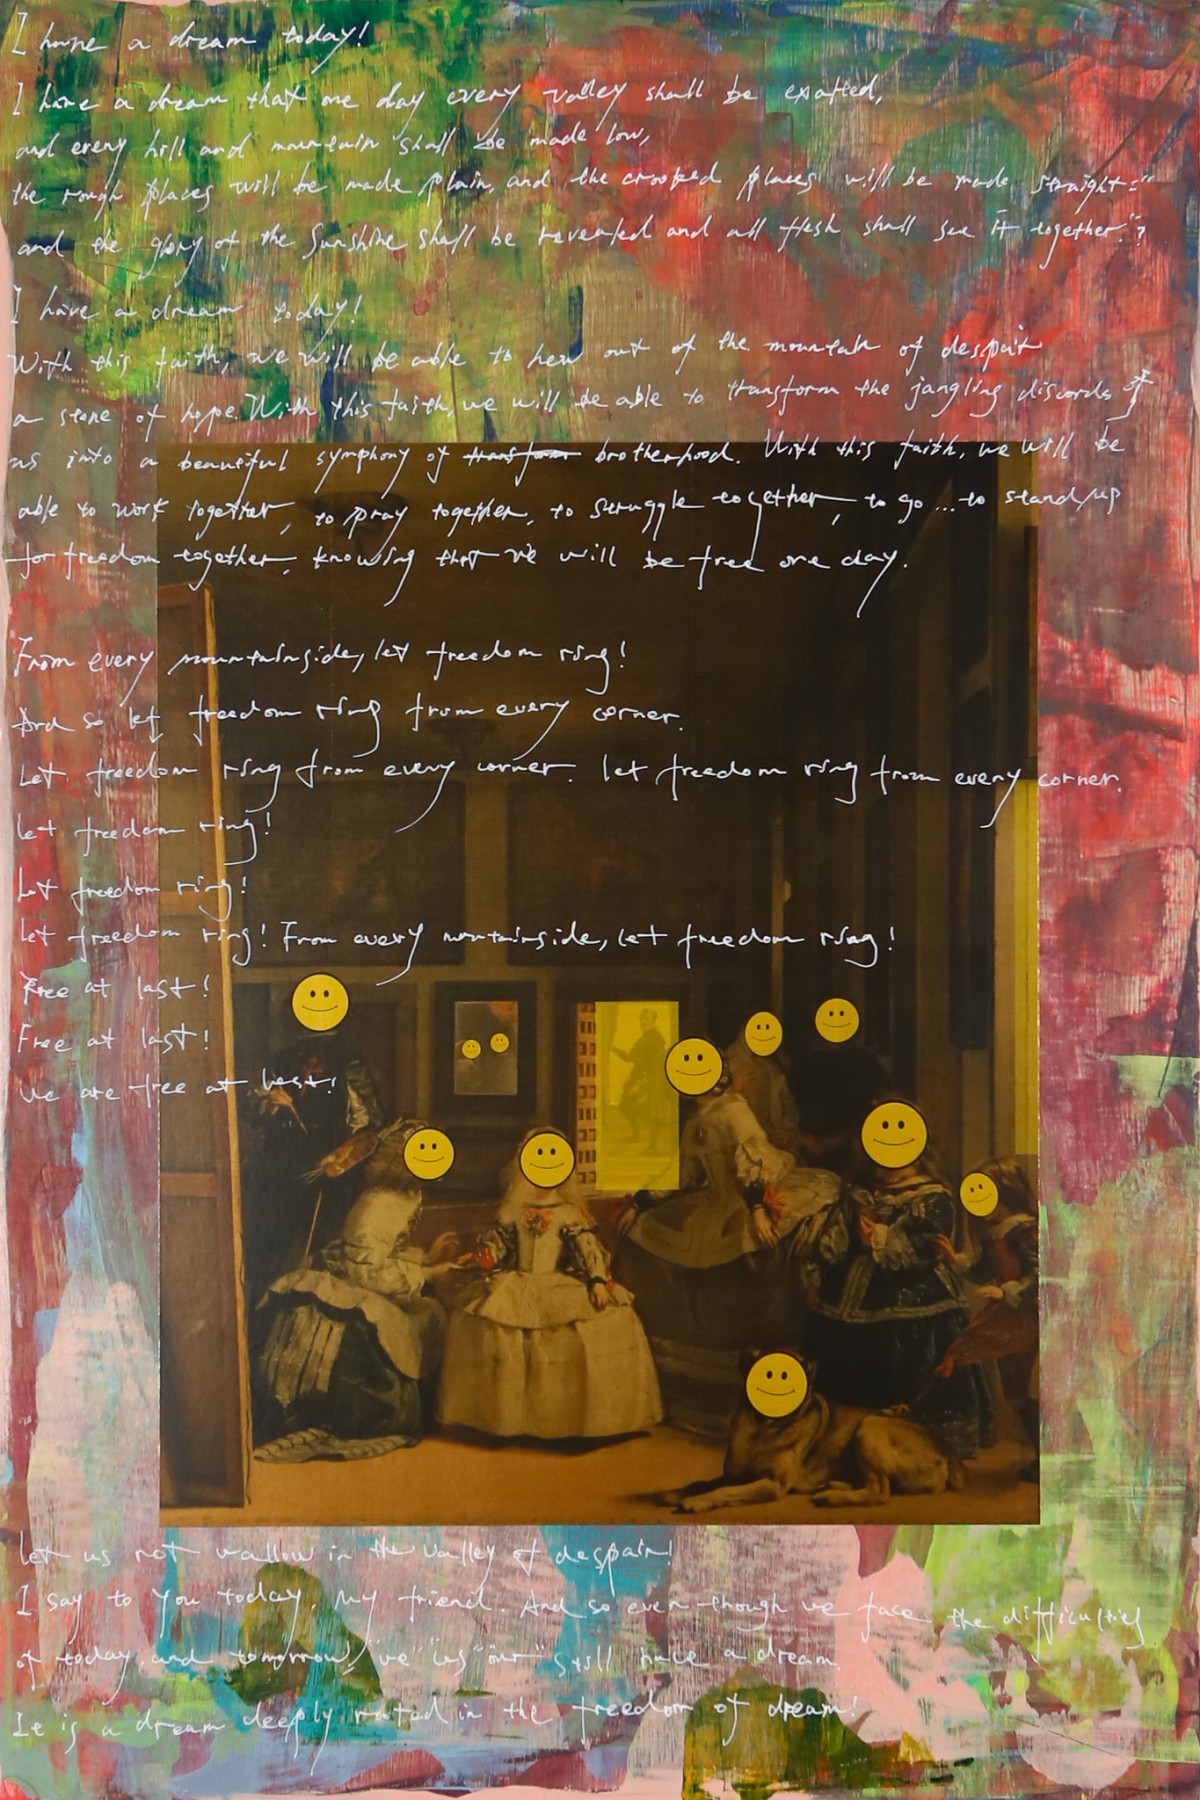 I have a dream today!
I have a dream that one day every valley shall be exalted,
and every hill and mountain shall be made low,
the rough places will be made plain, and the crooked places will be made straight:"
and the glory of the Sunshine shall be revealed and all flesh shall see it together."?
I have a dream today!
With this faith, we will be able to hew out of the mountain of despair
a stone of hope. With this faith, we will be able to transform the jangling discords of
us into a beautiful symphony of transform brotherhood. With this faith, we will be
able to work together, to pray together, to struggle together, to go ... to stand up
for freedom together, knowing that we will be free one day.
From every mountainside, let freedom ring!
And so let freedom ring from every corner.
Let freedom ring from every corner. let freedom ring from every corner.
let freedom ring!
Let freedom ring!
let freedom ring! From every mountainside, let freedom ring!
Free at last!
Free at last!
we are free at last!
let us not wallow in the valley of despair!
I say to you today, my friend. And so even though we face the difficulties
of today and tomorrow, "we" "us" "our" still have a dream.
It is a dream deeply rooted in the freedom of dream!